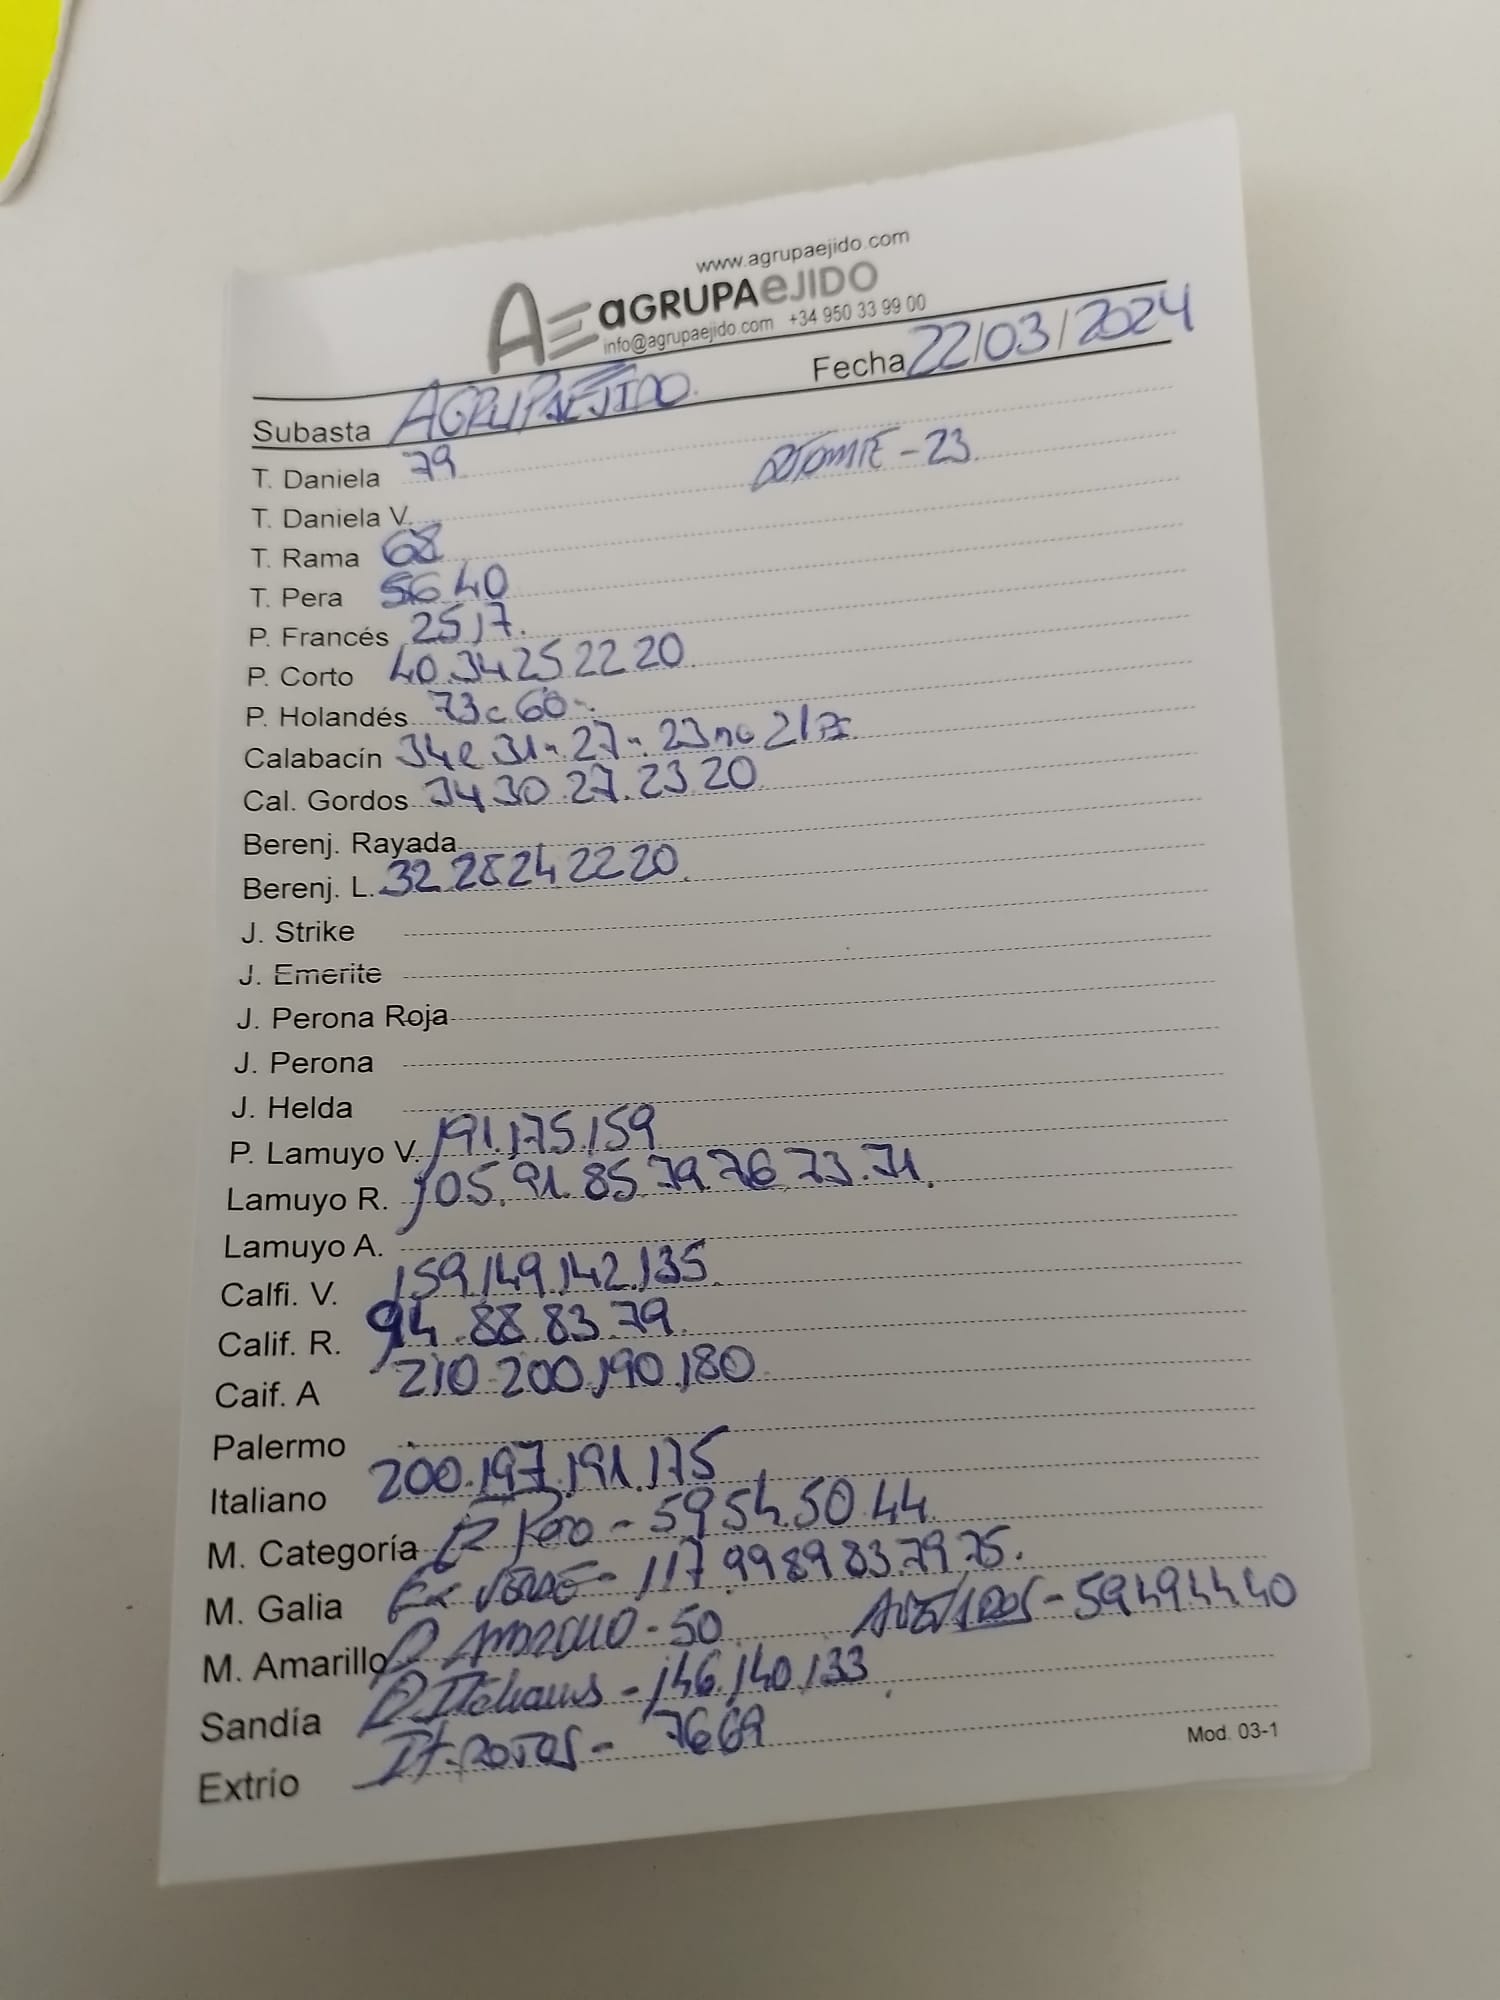 www.agrupaejido.com
AE aGRUPAeJIDO
info@agrupaejido.com +34 950 33 99 00
Fecha 22/03/2024
Subasta AGRUPAEJIDO.
T. Daniela 79 - 23
T. Daniela V.
T. Rama 68
T. Pera 56 40
P. Francés 25 17.
P. Corto 40.34 25 22 20
P. Holandés 73c 60
Calabacín 34e 31 27 23 21
Cal. Gordos 34 30.27.23.20
Berenj. Rayada
Berenj. L. 32 28 24 22 20.
J. Strike
J. Emerite
J. Perona Roja
J. Perona
J. Helda
P. Lamuyo V. 191.175.159
Lamuyo R. 105.91.85.79.76.73.71.
Lamuyo A.
Calfi. V. 159.149.142.135
Calif. R. 94.88.83.79.
Caif. A 210.200.190.180
Palermo
Italiano 200.197.191.175
M. Categoría - 59 54.50.44.
M. Galia - 117.99 89 83.79 75.
M. Amarillo - 50 - 59 49.44.40
Sandía - 146.140.133
Extrío - 76 69
Mod. 03-1